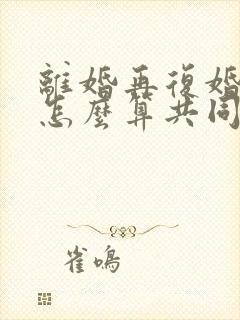 離婚再復婚
怎麼算共同
雀鳴